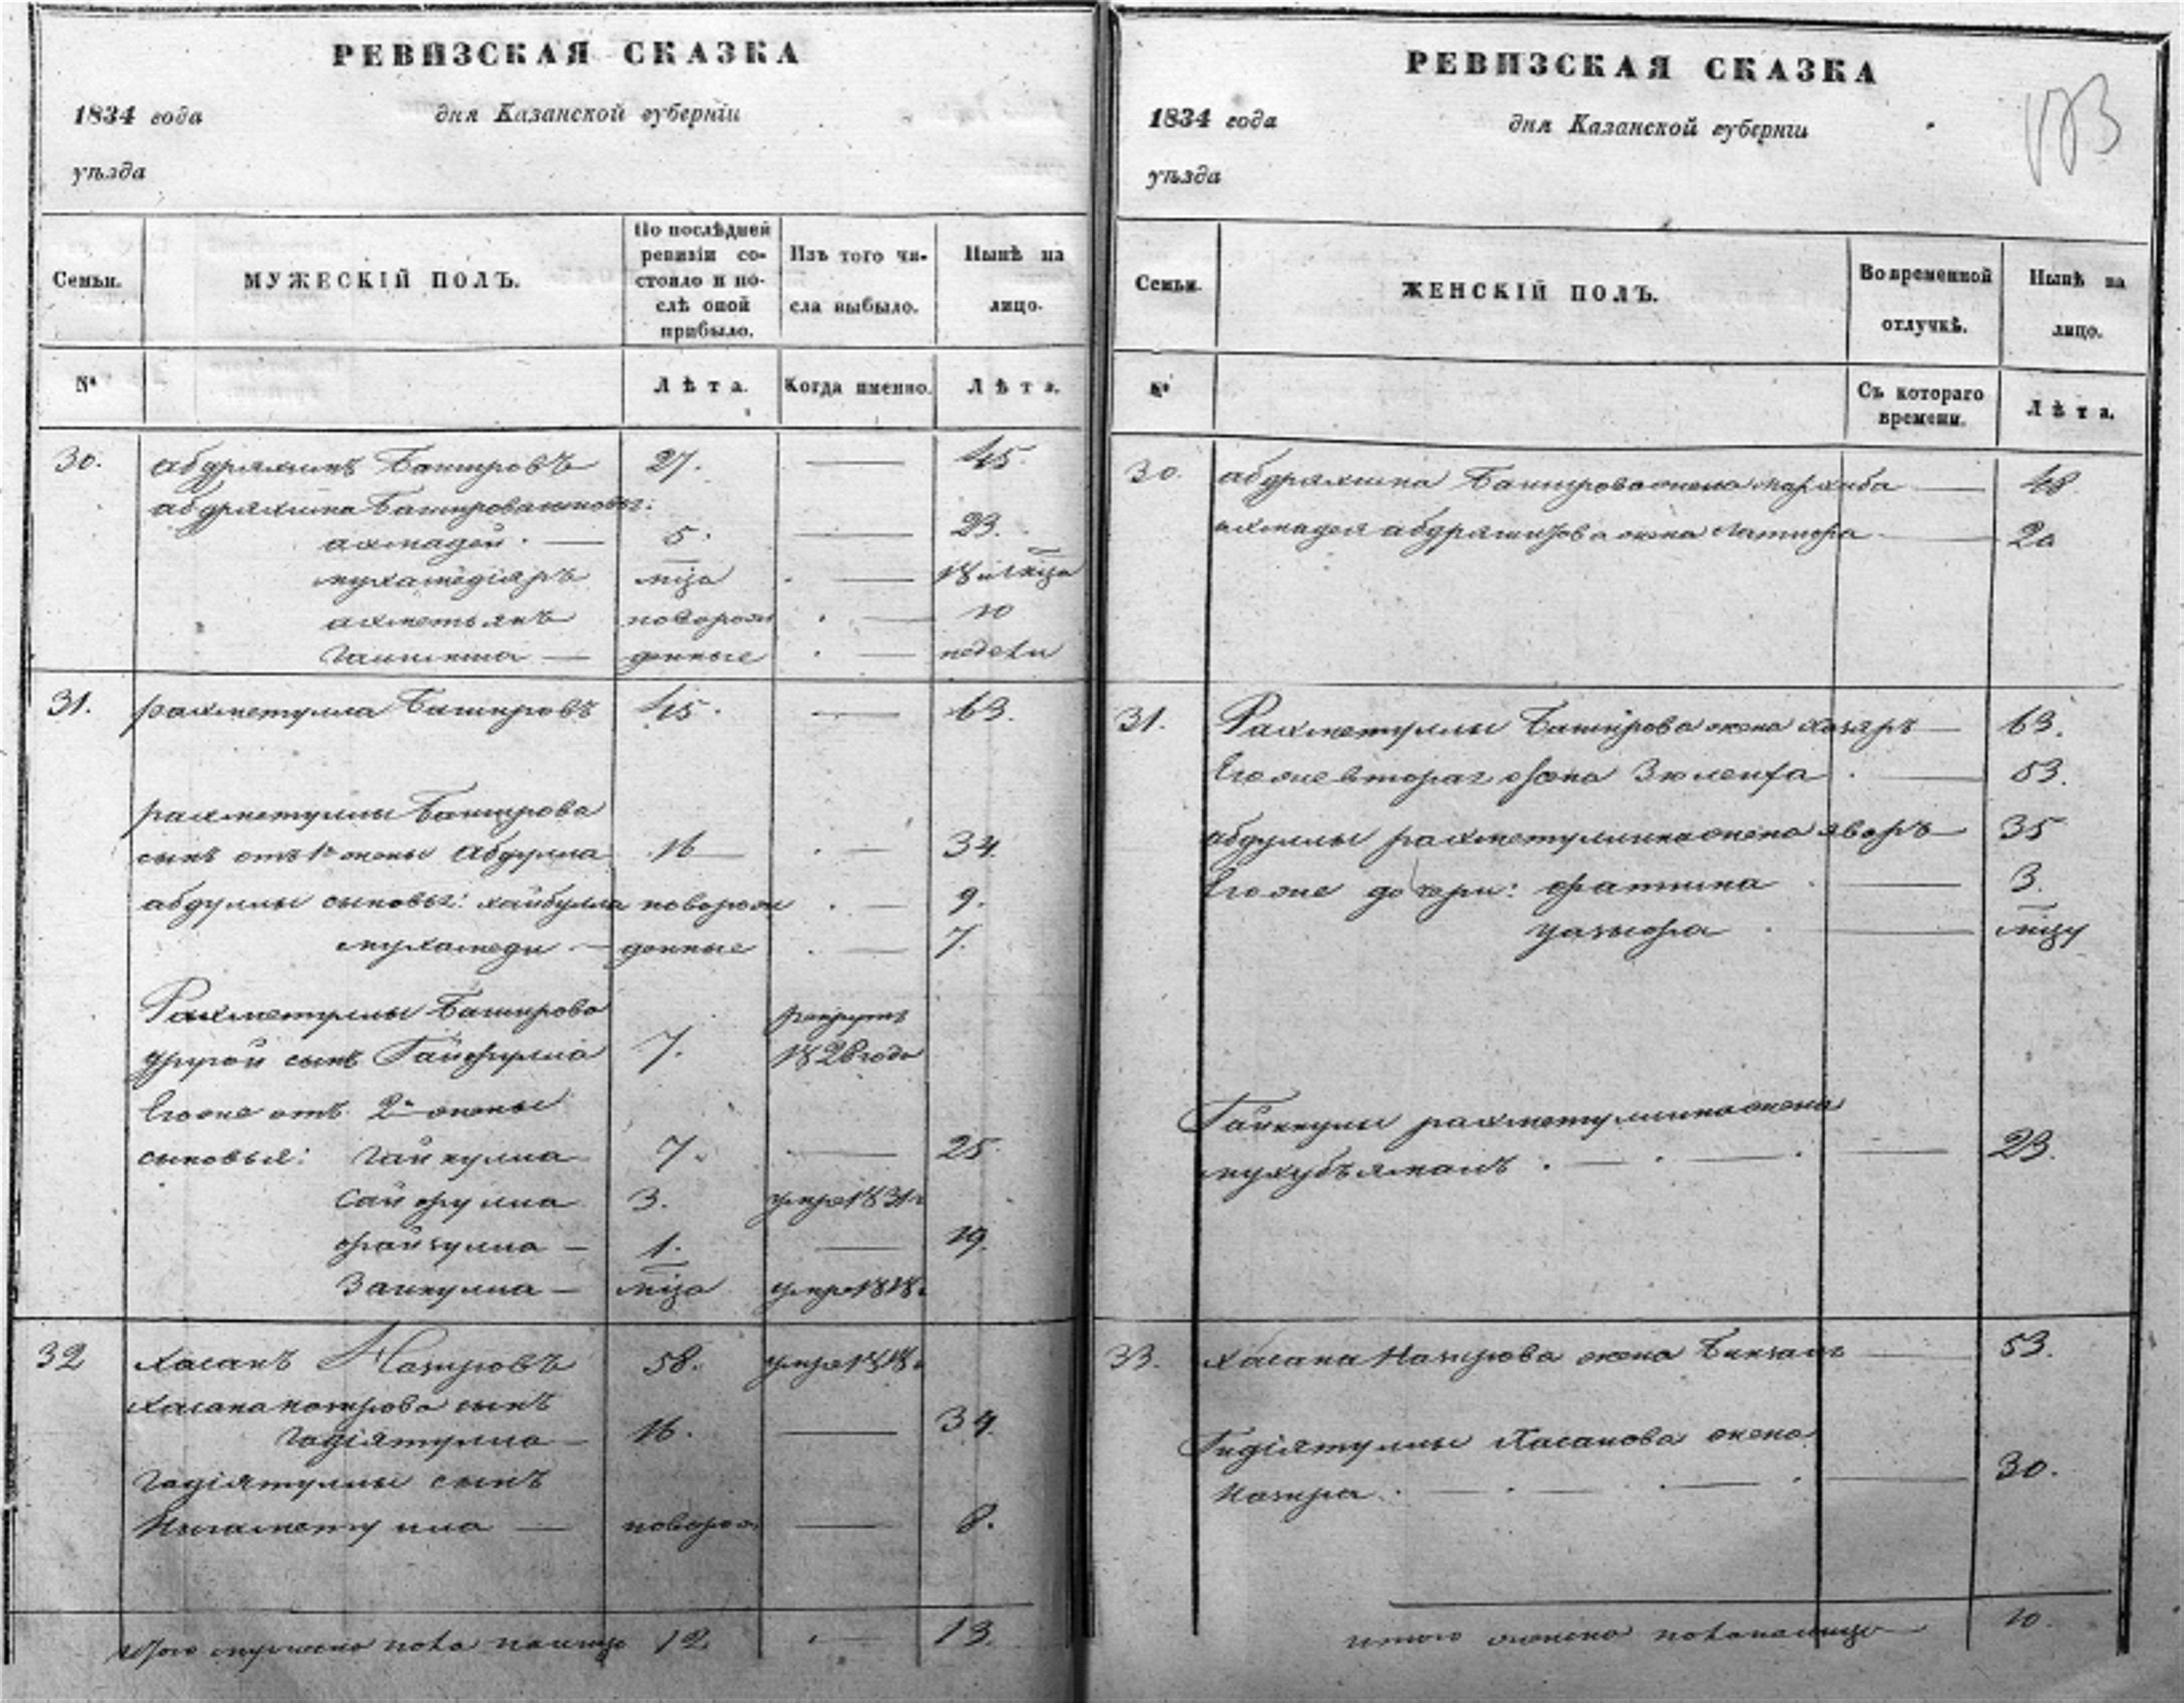 РЕВИЗСКАЯ СКАЗКА
1834 года дня Казанской губерніи
уѣзда
Семьи.
МУЖЕСКІЙ ПОЛЪ.
По послѣдней
ревизіи со-
стояло и по-
слѣ оной
прибыло.
Изъ того чи-
сла выбыло.
Нынѣ на
лицо.
№
Лѣта.
Когда именно.
Лѣта.
30. абдряхимъ Башировъ 27. — 45.
абдряхима Башировасыновья:
ахмадей. — 5. — 23.
мухаметдіяръ міца — 18
ахметьянъ поворож — 10
— денные — недели
31. рахметулла Башировъ 45. — 63.
рахметуллы Баширова
сынъ отъ 1й жены Абдулла 16 — 34.
абдуллы сыновья: хайбулла поворож — 9.
мухамеди — денные — 7.
Рахметуллы Баширова рекрутъ
другой сынъ Гайфулла 7. 1828года
Егоже отъ 2й жены
сыновья: Гайнулла 7. — 25.
Сайфулла 3. умре1831г
файзулла — 1. — 19.
Зайнулла — міца умре1818г
32 Хасанъ Назировъ 58. умре1818г
Хасана назирова сынъ
Гадіятулла — 16. — 34.
Гадіятуллы сынъ
Нигаметулла — поворож — 8.
Итого мужеска пола налицо 12. — 13.
РЕВИЗСКАЯ СКАЗКА
1834 года дня Казанской губерніи
уѣзда
Семьи.
ЖЕНСКІЙ ПОЛЪ.
Во временной
отлучкѣ.
Нынѣ на
лицо.
№
Съ котораго
времени.
Лѣта.
30. абдряхима Башироважена — 48.
ахмадея абдряхимова жена — 20
31. Рахметуллы Баширова жена — 63.
Егоже вторая жена — 53.
абдуллы рахметуллина жена — 35
Егоже дочери: фатима — 3.
— міцу
Гайнуллы рахметуллина жена
— 23.
33. Хасана Назирова жена — 53.
Гидіятуллы Хасанова жена
Назира. — 30.
итого женска пола налицо 10.